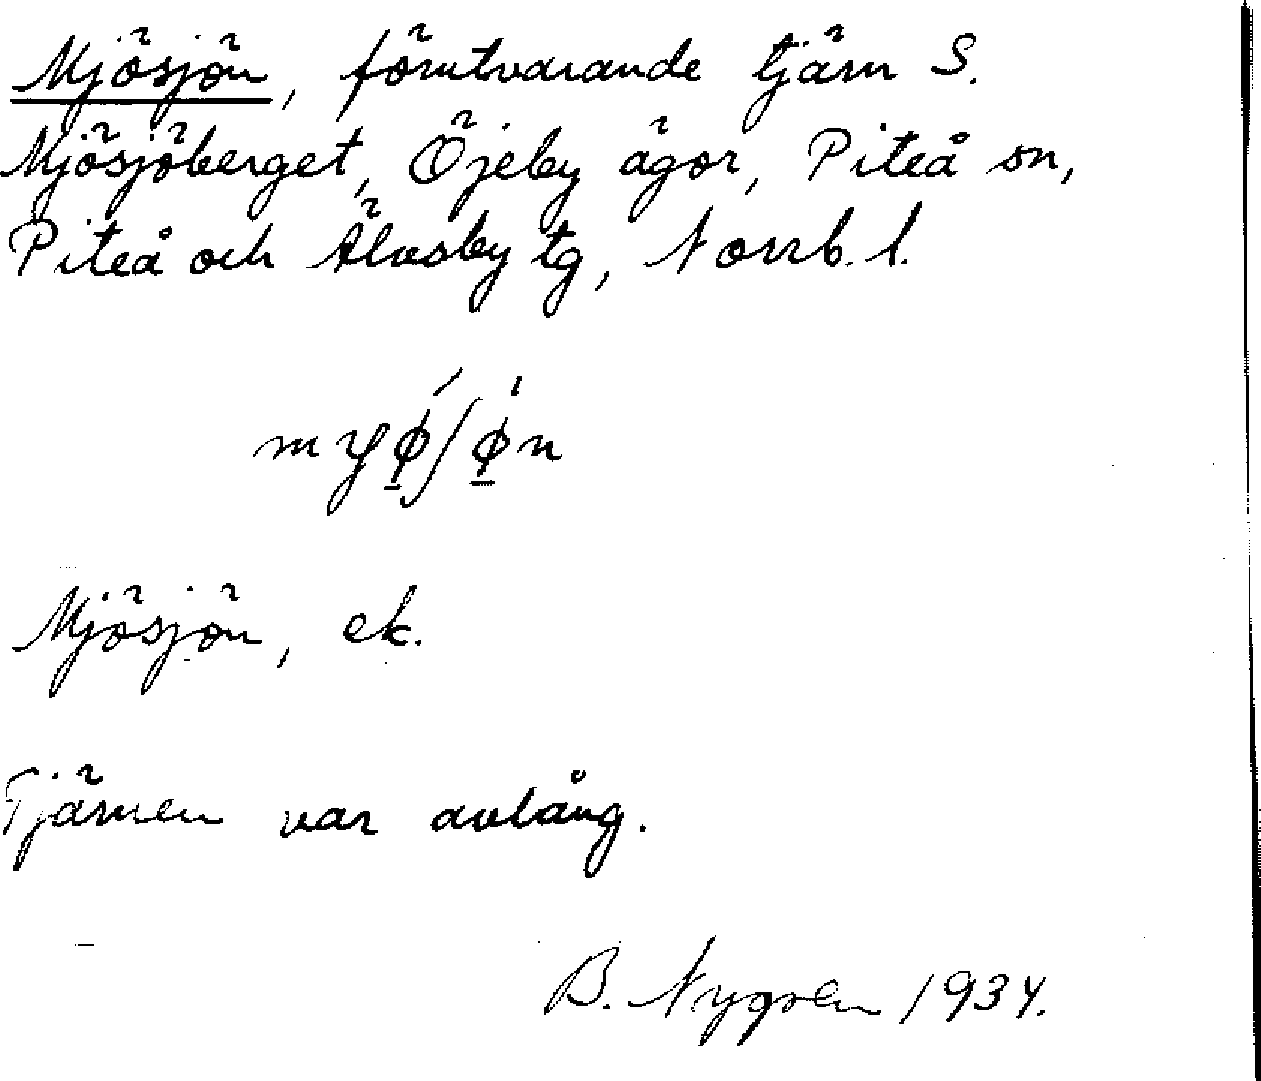 Mjösjön, förutvarande tjärn S.
Mjösjöberget, Öjeby ägor, Piteå sn,
Piteå och Älvsby tg, Norrb. l.
myǿ̱ʃø̱̍n
Mjösjön, ek.
Tjärnen var avlång.
B. Nygren 1934.